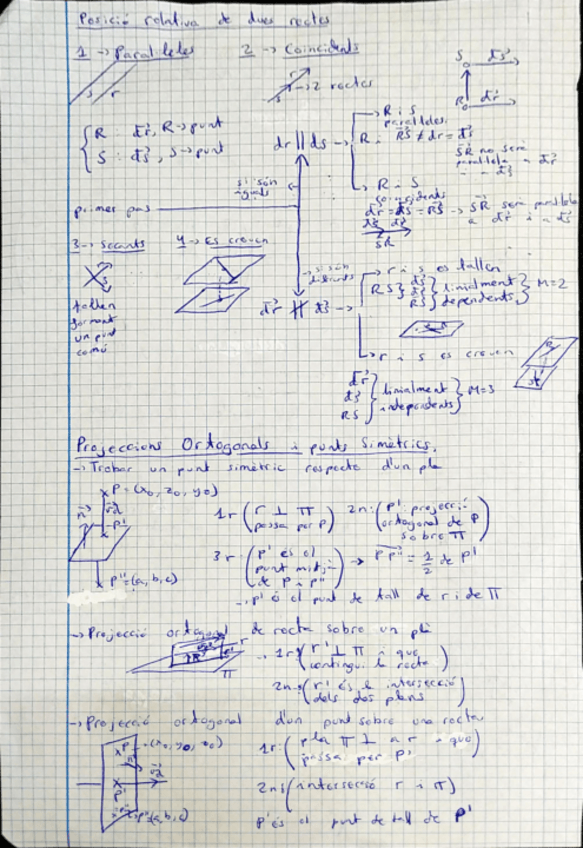 Posició relativa de dues rectes
1 → Paral·leles
2 → Coincidents
s r
r
s → 2 rectes
S ds
R dr
R : dr, R → punt
S : ds, S → punt
dr || ds →
R i S
paral·leles.
RS ≠ dr = ds
SR no serà
paral·lela a dr
R i S
coincidents
dr = ds = RS → SR serà paral·lela
a dr i a ds
SR
si són
iguals
primer pas
3 → secants
4 → es creuen
tallen
formant
un punt
comú
si són
diferents
dr ∦ ds →
r i s es tallen
RS } dr ds RS } linialment dependents } M=2
r i s es creuen
dr
ds
RS
} linialment
independents } M=3
Projeccions Ortogonals i punts Simètrics.
→ Trobar un punt simètric respecte d'un pla
P = (x0, z0, y0)
P'
P'' = (a, b, c)
1r ( r ⊥ π
passa per P )
2n: ( P' projecció
ortogonal de P
sobre π )
3r ( P' és el
punt mitjà
de P i P'' ) → PP'' = 1/2 de P'
→ P' és el punt de tall de r i de π
→ Projecció ortogonal de recta sobre un pla
r
π
→ 1r ( r' ⊥ π i que
contingui la recta )
2n: ( r' és la intersecció
dels dos plans )
→ Projecció ortogonal d'un punt sobre una recta
P (x0, y0, z0)
P'
P'' = (a, b, c)
1r: ( pla π ⊥ a r i que
passa per P )
2n: ( intersecció r i π )
P' és el punt de tall de P'